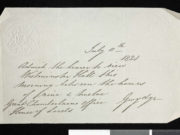 July 11th
1821
Admit the bearer to view
Westminster Hall this
morning between the hours
of
Great Chamberlain's Office
House of Lords